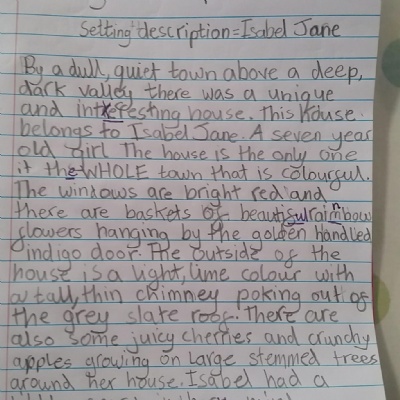 Setting description = Isabel Jane
By a dull, quiet town above a deep,
dark valley there was a unique
and interesting house. This house
belongs to Isabel Jane. A seven year
old girl The house is the only one
it the WHOLE town that is colourful.
The windows are bright red and
there are baskets of beautiful rainbow
flowers hanging by the golden handled
indigo door. The outside of the
house is a light, lime colour with
a tall, thin chimney poking out of
the grey slate roof. There are
also some juicy cherries and crunchy
apples growing on large stemmed trees
around her house. Isabel had a